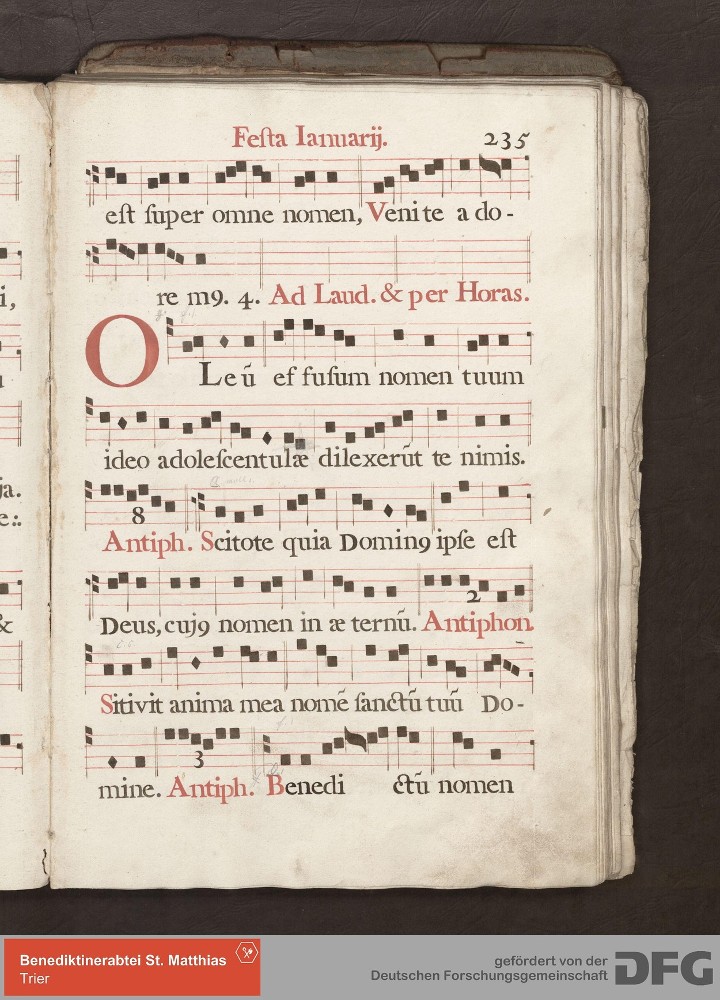 Festa Ianuarij. 235
est super omne nomen, Venite ado-
i,
re m9. 4. Ad Laud. & per Horas.
OLeū effusum nomen tuum
ideo adolescentulæ dilexerūt te nimis.
ja.
8
e:.
Antiph. Scitote quia Domin9 ipse est
2
&
Deus, cuj9 nomen in æternū. Antiphon.
Sitivit anima mea nomē sanctū tuū Do-
3
mine. Antiph. Benedictū nomen
Benediktinerabtei St. Matthias
Trier
gefördert von der
Deutschen Forschungsgemeinschaft
DFG